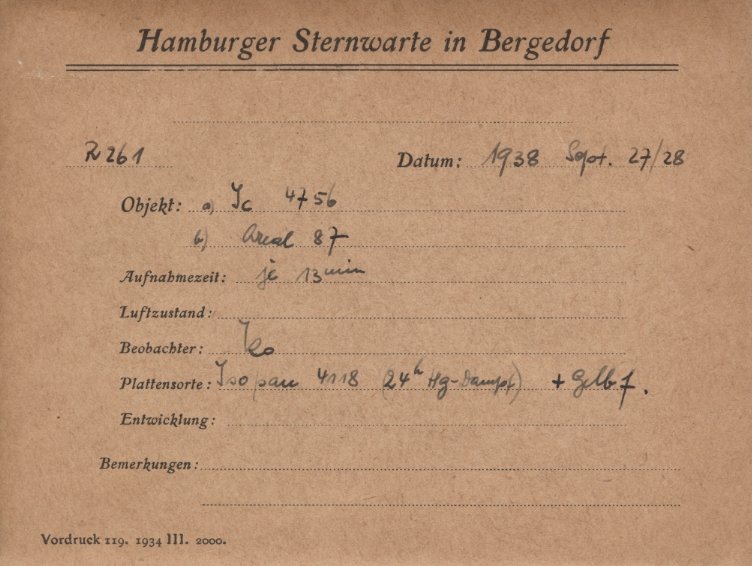 Hamburger Sternwarte in Bergedorf
R 261 Datum: 1938 Sept. 27/28
Objekt: a) Ic 4756
b) Areal 87
Aufnahmezeit: je 13 min
Luftzustand:
Beobachter: Ko
Plattensorte: Isopan 4118 (24h Hg-Dampf) + Gelbf.
Entwicklung:
Bemerkungen:
Vordruck 119. 1934 III. 2000.